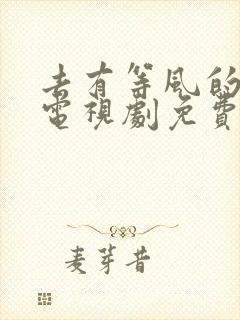 去有等风的
電視劇免費
麦芽昔